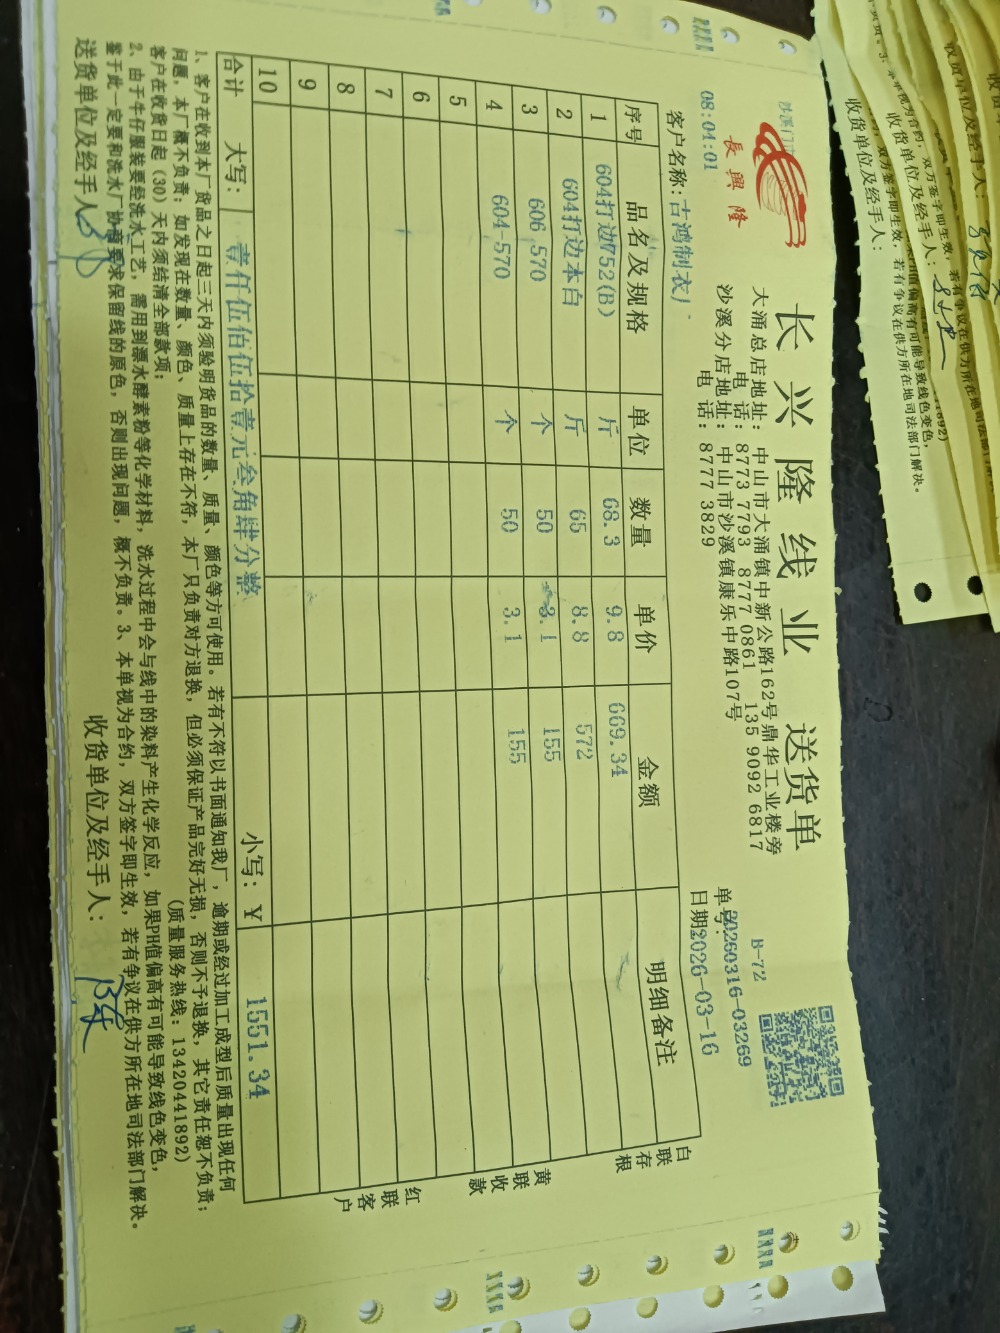 长兴隆线业 送货单
長興隆
大涌总店地址: 中山市大涌镇中新公路162号鼎华工业楼旁
电 话: 8773 7793 8777 0861 135 9092 6817
沙溪分店地址: 中山市沙溪镇康乐中路107号
电 话: 8777 3829
B-72
08:04:01
单号: 20260316-03269
客户名称: 古鸿制衣厂
日期 2026-03-16
序号 品名及规格 单位 数量 单价 金额 明细备注
1 604打边752(B) 斤 68.3 9.8 669.34
2 604打边本白 斤 65 8.8 572
3 606 570 个 50 3.1 155
4 604-570 个 50 3.1 155
5
6
7
8
9
10
合计 大写: 壹仟伍佰伍拾壹元叁角肆分整 小写: ¥ 1551.34
白联存根
黄联收款
红联客户
1、客户在收到本厂货品之日起三天内须验明货品的数量、质量、颜色等方可使用。若有不符以书面通知我厂，逾期或经过加工成型后质量出现任何
问题，本厂概不负责；如发现在数量、颜色、质量上存在不符，本厂只负责对方退换，但必须保证产品完好无损，否则不予退换，其它责任恕不负责；
客户在收货日起（30）天内须结清全部款项； (质量服务热线: 13420441892)
2、由于牛仔服装要经洗水工艺，需用到漂水酵素粉等化学材料，洗水过程中会与线中的染料产生化学反应，如果PH值偏高有可能导致线色变色，
鉴于此一定要和洗水厂协商要求保留线的原色，否则出现问题，概不负责。3、本单视为合约，双方签字即生效，若有争议在供方所在地司法部门解决。
送货单位及经手人:
收货单位及经手人:
收货单位及经手人:
收货单位及经手人: